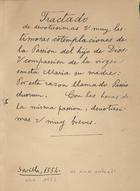 Tractado
de devotissimas & muy les-
timosas contemplaciones de
la Passion del hijo de Dios
& compassion de la virgen
sancta Maria su madre:
Por esta razon llamado Passio
duorum. Con las horas de
la misma passion, devotissi-
mas & muy breves.
Sevilla, 1554.